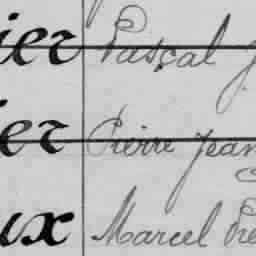 ier Pascal J
ier Pierre Jean
ux Marcel